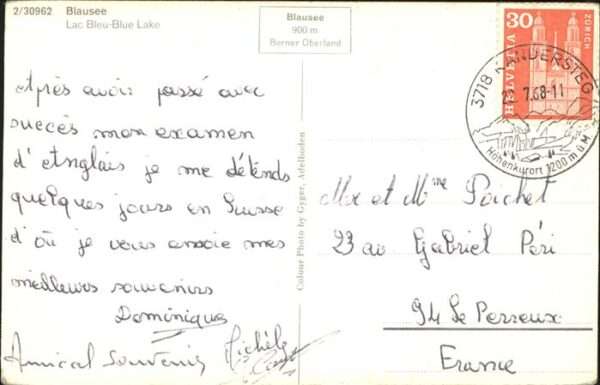 2/30962 Blausee
Lac Bleu-Blue Lake
Blausee
900 m
Berner Oberland
HELVETIA
30
ZÜRICH
3718 KANDERSTEG
7.68-11
Höhenkurort 1200 m ü. M.
Après avoir passé avec
succès mon examen
d'Anglais je me détends
quelques jours en Suisse
d'où je vous envoie mes
meilleurs souvenirs
Dominique
Amical Souvenir Michèle
Colour Photo by Gyger, Adelboden
Mr et Mme Poichet
23 av Gabriel Péri
94 Le Perreux
France